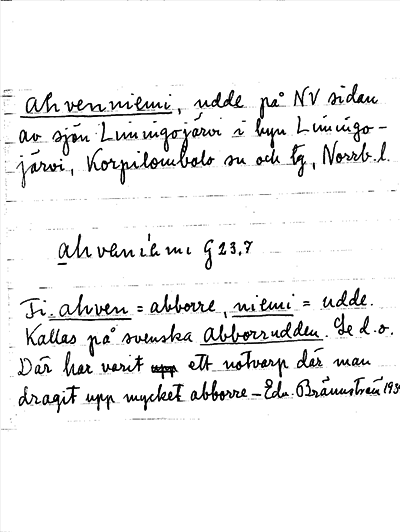 ahvenniemi, udde på NV sidan
av sjön Liningojärvi i byn Liningo-
järvi, Korpilombolo sn och tg, Norrb.l.
ahvenıẻmı G 23,7
Fi. ahven = abborre, niemi = udde.
Kallas på svenska Abborrudden. Se d.o.
Där har varit upp ett notvarp där man
dragit upp mycket abborre – Edv. Brännström